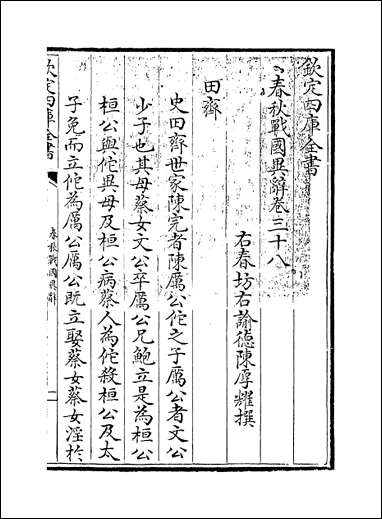 欽定四庫全書
春秋戰國異辭卷三十八
右春坊右諭德陳厚耀撰
田齊
史田齊世家陳完者陳厲公佗之子厲公者文公
少子也其母蔡女文公卒厲公兄鮑立是為桓公
桓公與佗異母及桓公病蔡人為佗殺桓公及太
子免而立佗為厲公厲公既立娶蔡女蔡女淫於
欽定四庫全書
春秋戰國異辭